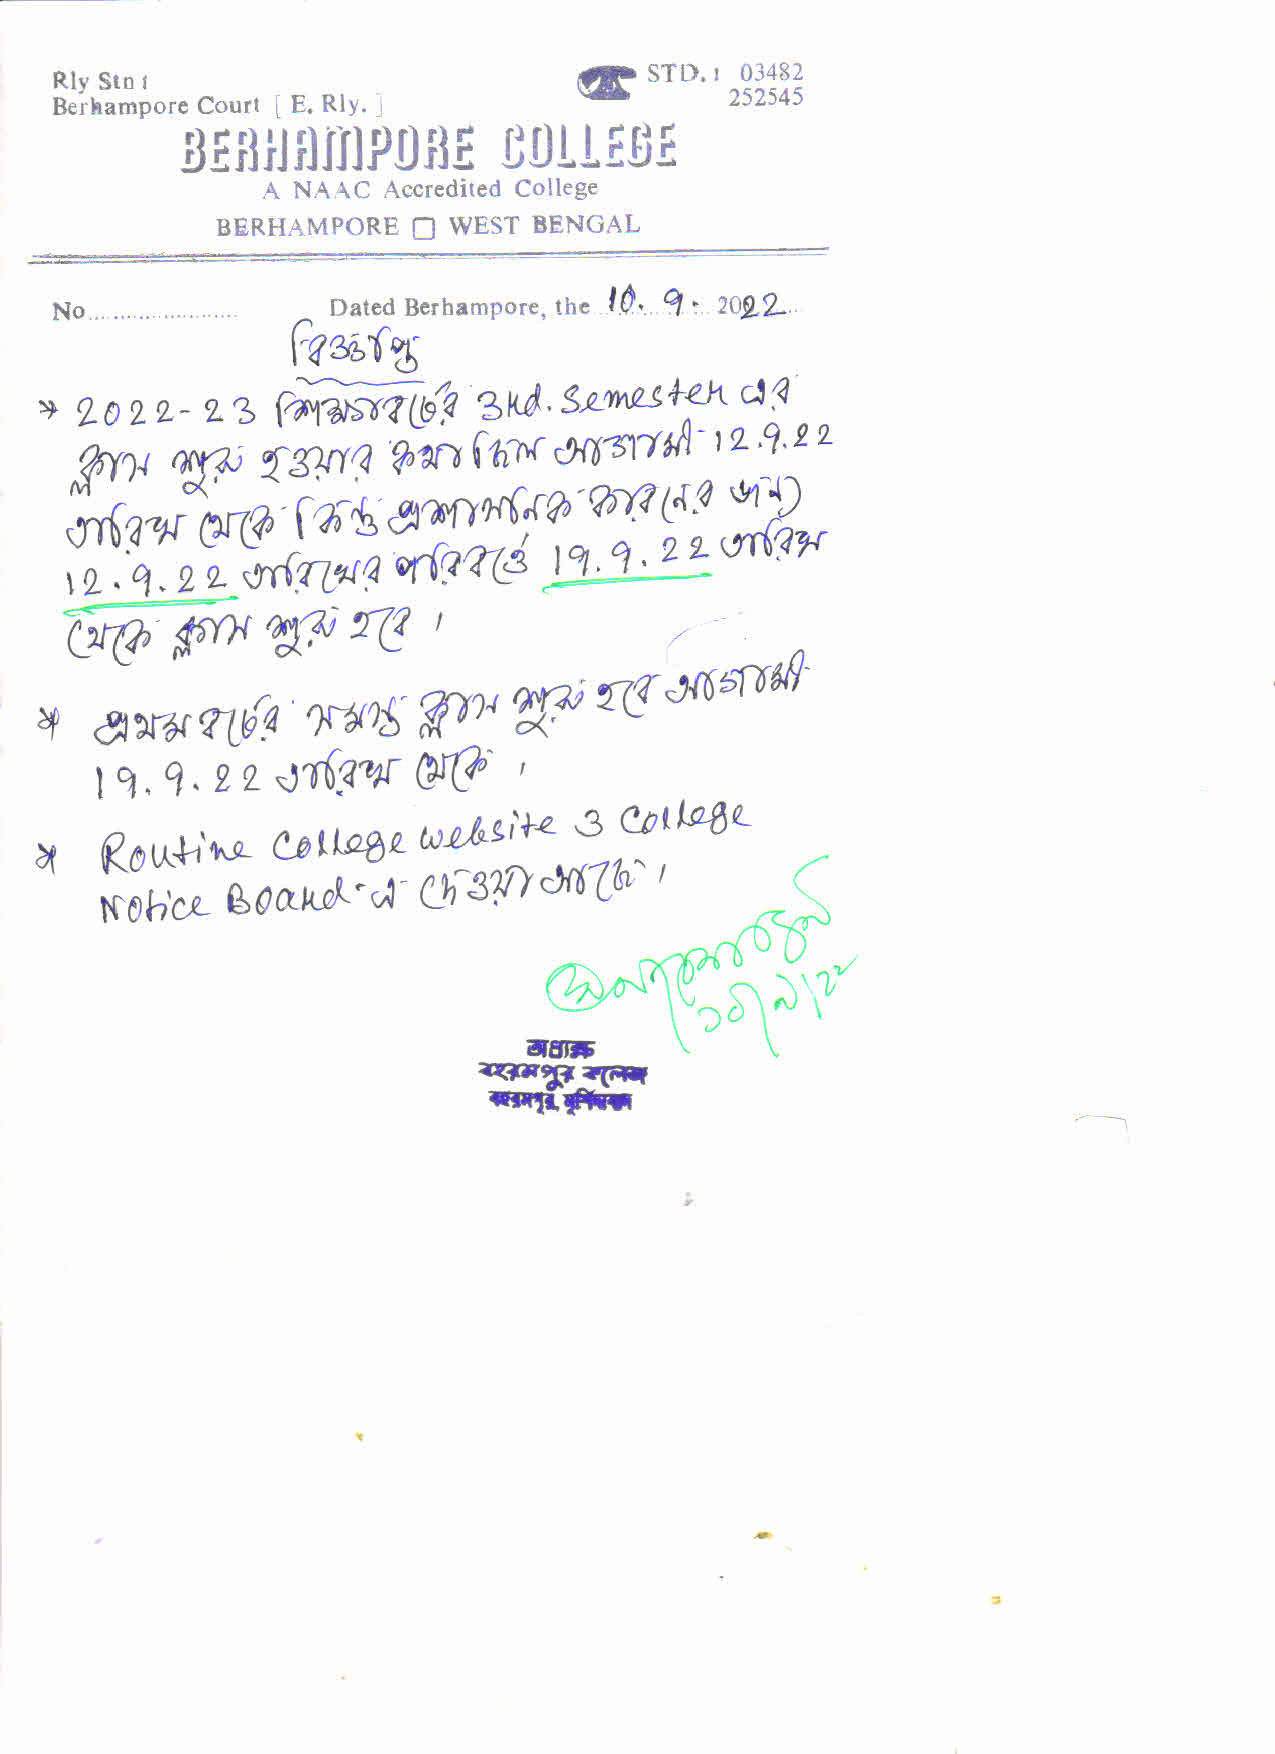 Rly Stn :
STD. : 03482
Berhampore Court [ E. Rly. ]
252545
BERHAMPORE COLLEGE
A NAAC Accredited College
BERHAMPORE □ WEST BENGAL
No.................... Dated Berhampore, the 10. 9. 2022
বিজ্ঞপ্তি
* 2022-23 শিক্ষাবর্ষের 3rd. Semester এর
ক্লাস শুরু হওয়ার কথা ছিল আগামী 12.9.22
তারিখ থেকে কিন্তু প্রশাসনিক কারনের জন্য
12.9.22 তারিখের পরিবর্তে 19.9.22 তারিখ
থেকে ক্লাস শুরু হবে ।
* প্রথম বর্ষের সমস্ত ক্লাস শুরু হবে আগামী
19.9.22 তারিখ থেকে ।
* Routine College website ও College
Notice Board-এ দেওয়া আছে ।
১০/৯/২২
অধ্যক্ষ
বহরমপুর কলেজ
বহরমপুর, মুর্শিদাবাদ